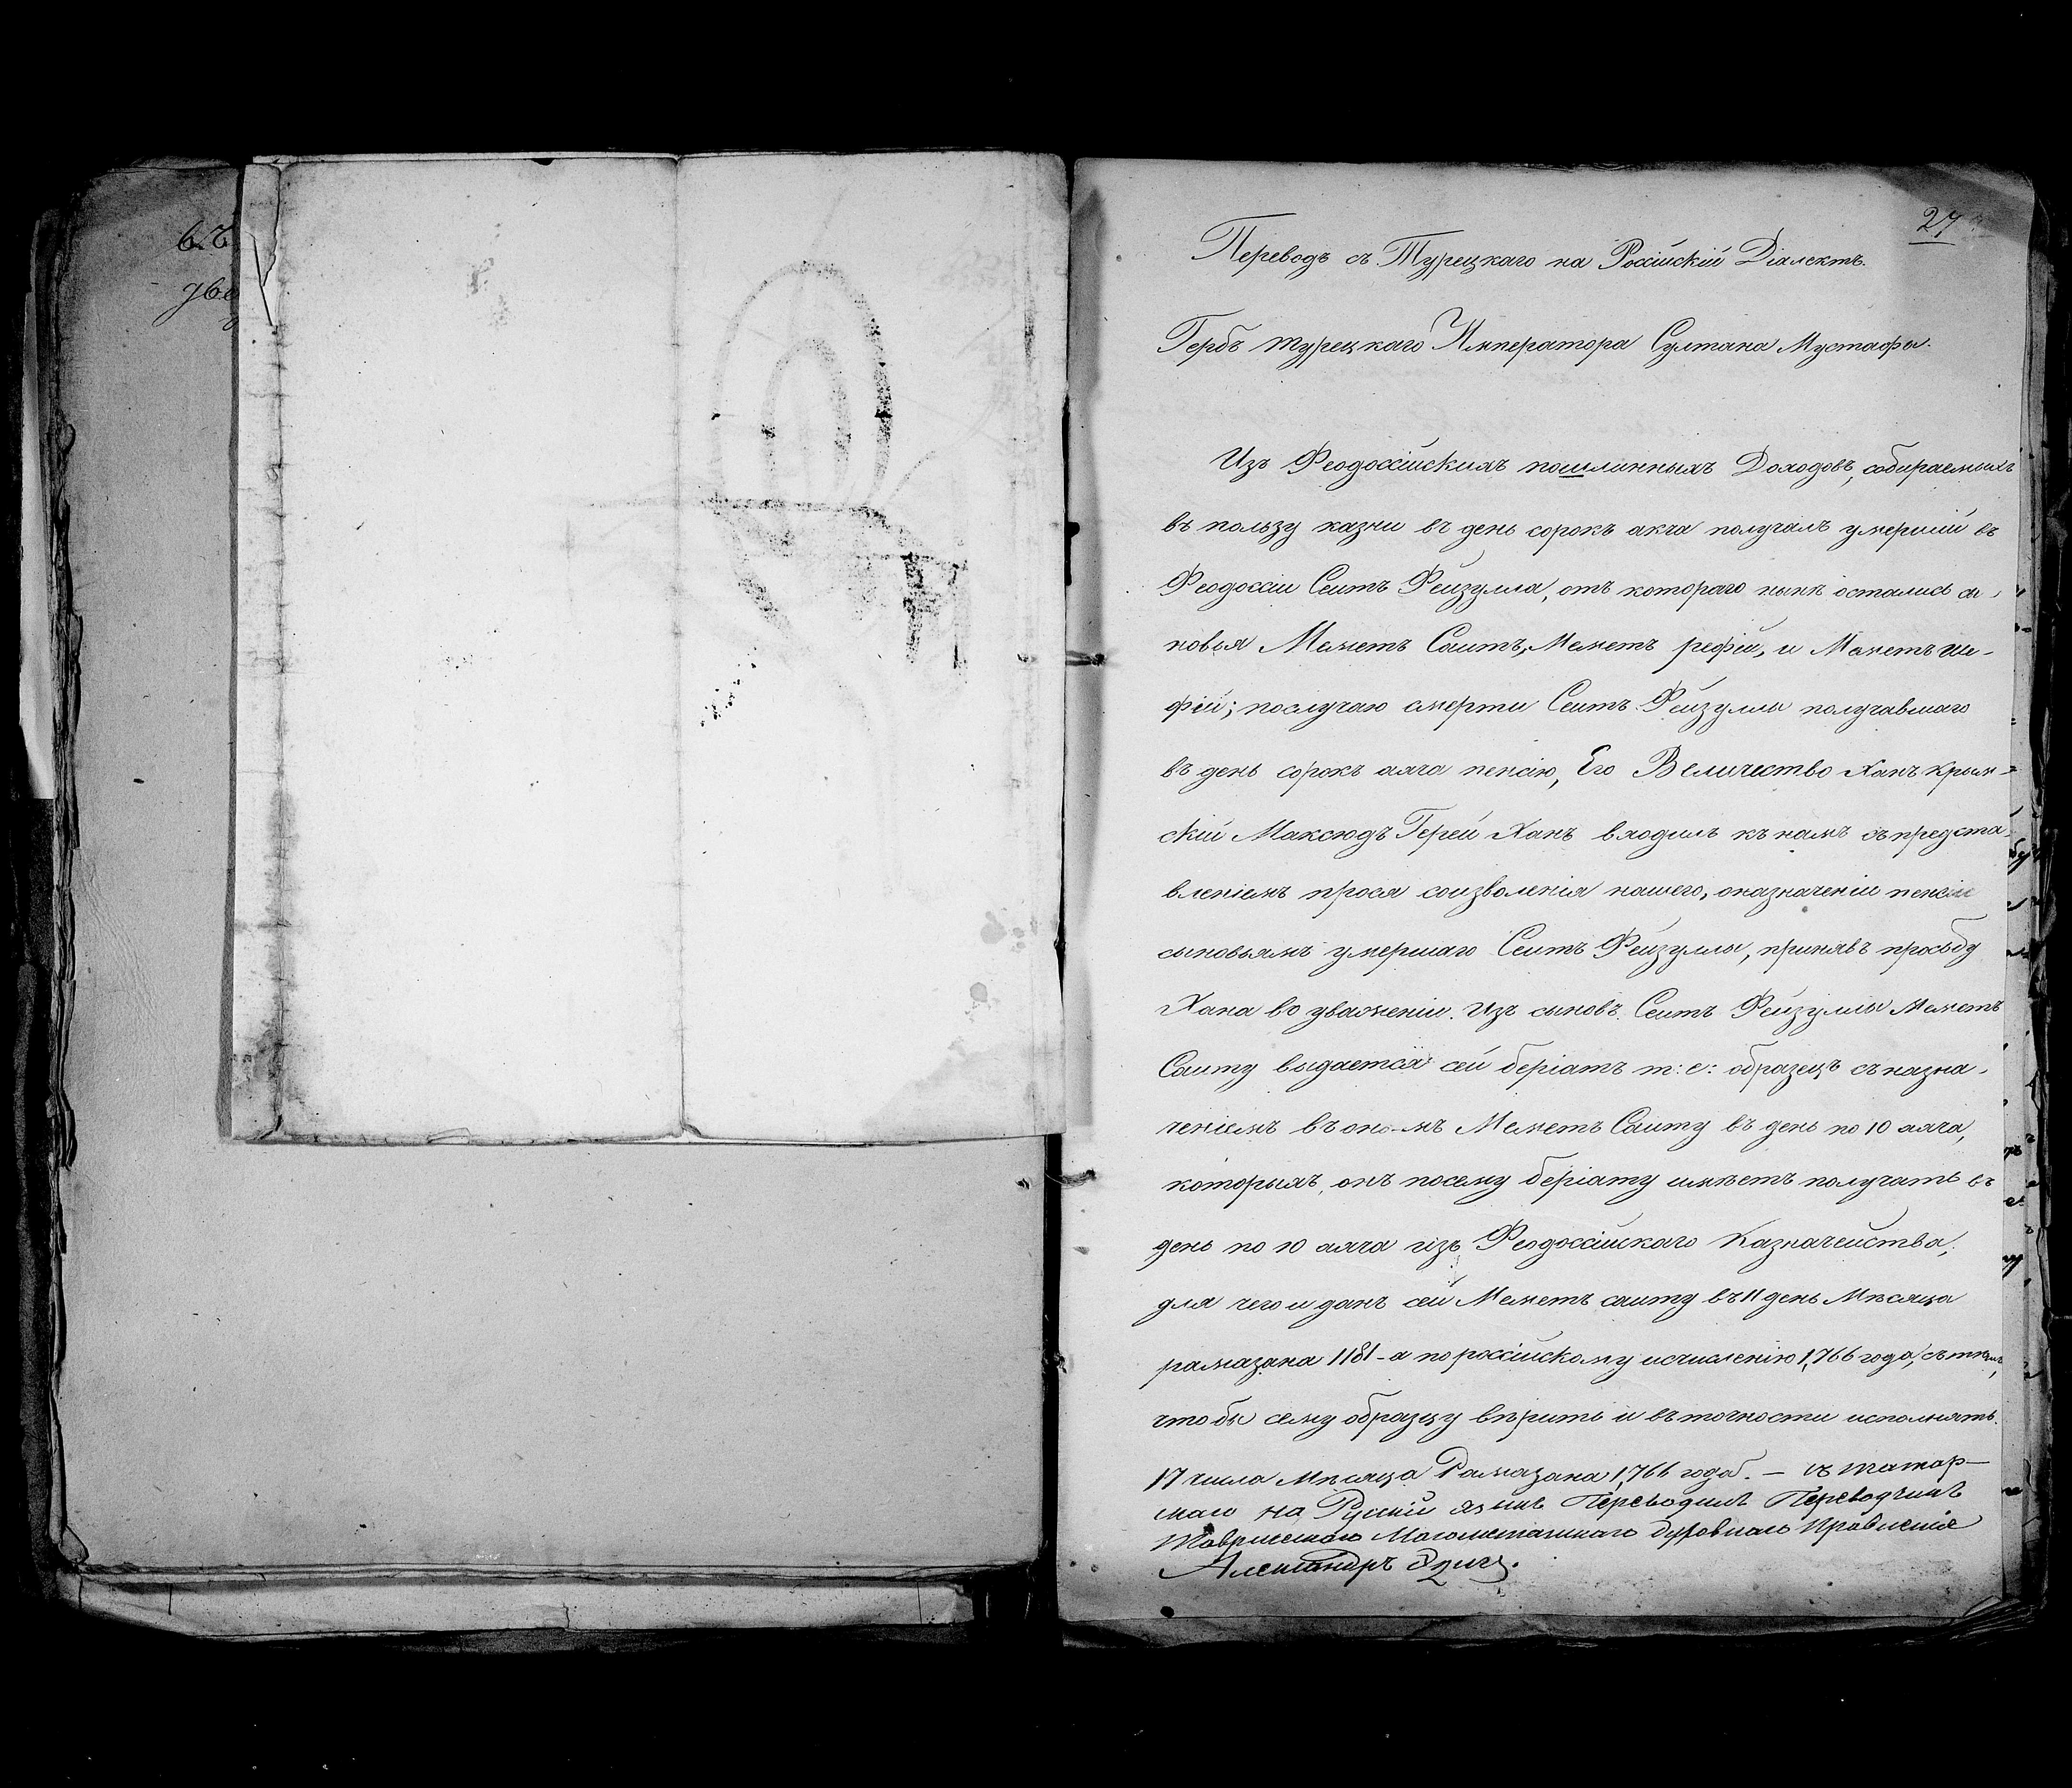 27
Переводъ съ Турецкаго на Россiйскiй Дiалектъ.
Гербъ турецкаго Императора Султана Мустафы.
Изъ Феодоссiйскихъ пошлинныхъ Доходовъ, собираемыхъ
въ пользу казны въ день сорокъ акча получалъ умершiй въ
Феодоссiи Сеитъ Фейзулла, отъ котораго нынѣ остались сы-
новья Меметъ Саитъ, Меметъ рефiй, и Меметъ ше-
фiй; послучаю смерти Сеитъ Фейзуллы получавшаго
въ день сорокъ ахча пенсiю, Его Величество Ханъ Крым-
скiй Максюдъ Герей Ханъ входилъ къ намъ съ предста-
вленiемъ прося соизволенiя нашего, оназначенiи пенсiи
сыновьямъ умершаго Сеитъ Фейзуллы, принявъ просьбу
Хана во уваженiи. Изъ сыновъ Сеитъ Фейзуллы Меметъ
Саиту выдается сей берiатъ т: е: образецъ съ назна-
ченiемъ въ ономъ Меметъ Саиту въ день по 10 ахча,
которыхъ онъ посему берiату имѣетъ получать въ
день по 10 ахча изъ Феодоссiйскаго Казначейства,
для чего и данъ сей Меметъ саиту въ 11 день Мѣсяца
рамазана 1181-а по россiйскому исчисленiю 1,766 года, съ тѣмъ,
чтобы сему образцу вѣрить и въ точности исполнять.
17 числа Мѣсяца Рамазана 1,766 года. — съ татар-
скаго на Рускiй языкъ Переводилъ Переводчикъ
Таврическаго Магометанскаго духовнаго Правленiя
Александръ